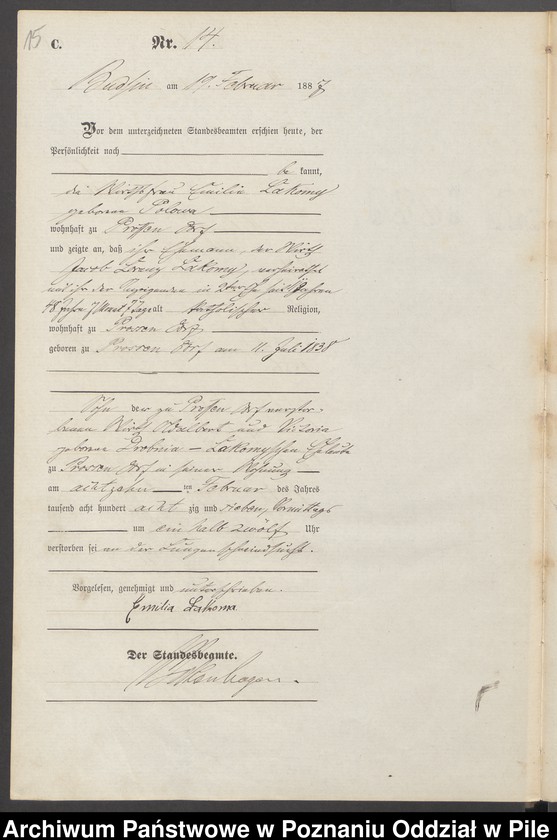 15 C. Nr. 14.
Budsin am 19. Februar 1887
Vor dem unterzeichneten Standesbeamten erschien heute, der
Persönlichkeit nach
be kannt,
die Wirthsfrau Emilia Lakomy
geborene
wohnhaft zu Prossen Dorf
und zeigte an, daß ihr Ehemann, der Wirth
Jacob Lakomy, verheirathet
mit ihr der Anzeigenden in
48 Jahre 7 Monat 7 Tage alt katholischer Religion,
wohnhaft zu Prossen Dorf
geboren zu Prossen Dorf am 11. Juli 1838
Sohn der zu Prossen Dorf verstor-
benen Wirth Adalbert und Victoria
geborene Lakomyschen Eheleute
zu Prossen Dorf in seiner Wohnung
am achtzehn ten Februar des Jahres
tausend acht hundert acht zig und sieben, Vormittags
um ein halb zwölf Uhr
verstorben sei an der Lungenschwindsucht.
Vorgelesen, genehmigt und unterschrieben.
Emilia Lakoma
Der Standesbeamte.
Archiwum Państwowe w Poznaniu Oddział w Pile